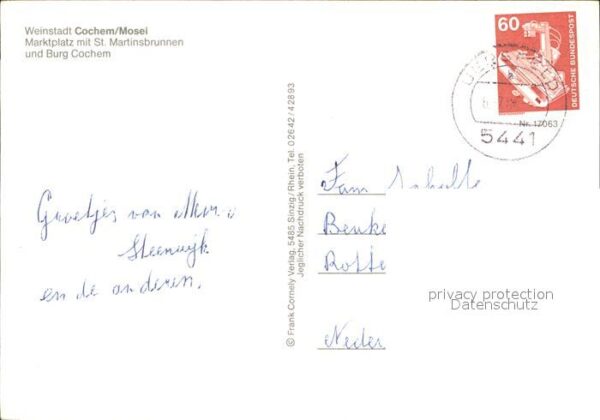 Weinstadt Cochem/Mosel
Marktplatz mit St. Martinsbrunnen
und Burg Cochem
60
DEUTSCHE BUNDESPOST
Nr. 17063
5441
© Frank Cornely Verlag, 5485 Sinzig/Rhein, Tel. 02642/42893
Jeglicher Nachdruck verboten
Groetjes van
Steenwijk
en de anderen.
Fam
Beuke
Rotte
Neder
privacy protection
Datenschutz